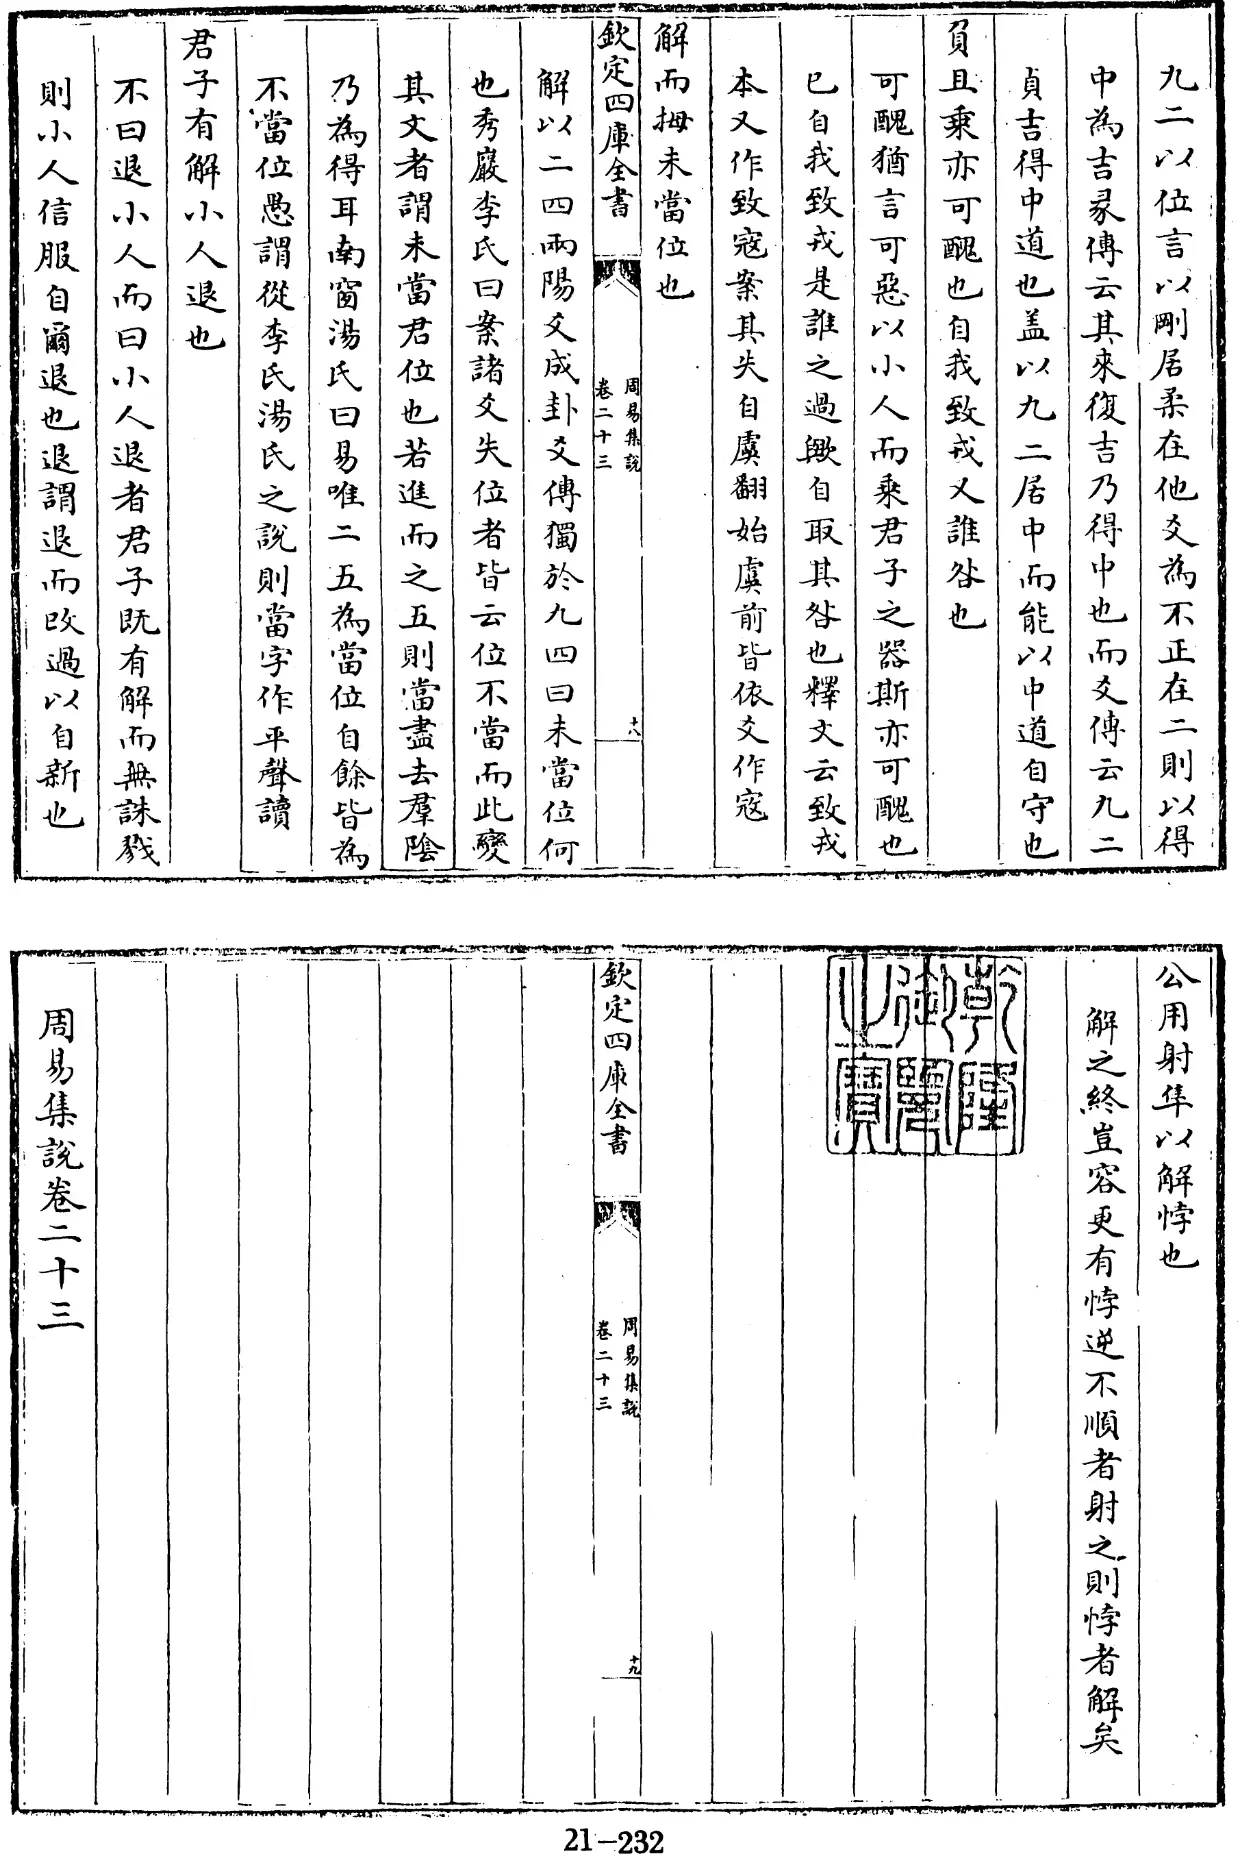 九二以位言以剛居柔在他爻為不正在二則以得
中為吉彖傳云其來復吉乃得中也而爻傳云九二
貞吉得中道也盖以九二居中而能以中道自守也
負且乗亦可醜也自我致戎又誰咎也
可醜猶言可惡以小人而乗君子之器斯亦可醜也
已自我致戎是誰之過歟自取其咎也釋文云致戎
本又作致寇案其失自虞翻始虞前皆依爻作寇
解而拇未當位也
欽定四庫全書
周易集說
卷二十三
十八
解以二四兩陽爻成卦爻傳獨於九四曰未當位何
也秀巖李氏曰案諸爻失位者皆云位不當而此變
其文者謂未當君位也若進而之五則當盡去羣陰
乃為得耳南窗湯氏曰易唯二五為當位自餘皆為
不當位愚謂從李氏湯氏之說則當字作平聲讀
君子有解小人退也
不曰退小人而曰小人退者君子既有解而無誅戮
則小人信服自爾退也退謂退而改過以自新也
公用射隼以解悖也
解之終豈容更有悖逆不順者射之則悖者解矣
乾隆
御覽
之寶
欽定四庫全書
周易集說
卷二十三
十九
周易集說卷二十三
21-232